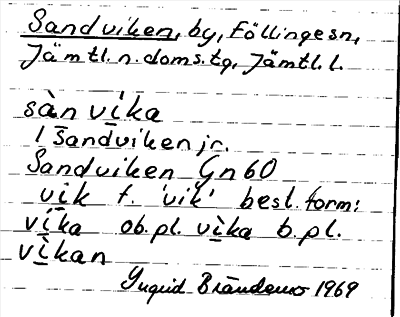 Sandviken, by, Föllinge sn,
Jämtl. n. doms. tg, Jämtl. l.
sàn víka
/ Sandviken jr.
Sandviken Gn 60
vik f. 'vik' best. form:
víka ob. pl. vìka b. pl.
vìkan
Ingrid 1969